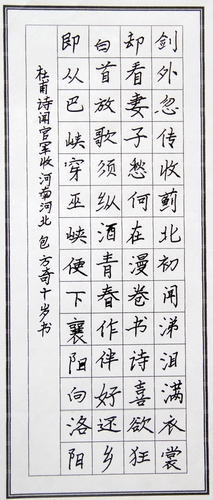 剑外忽传收蓟北初闻涕泪满衣裳
却看妻子愁何在漫卷书诗喜欲狂
白首放歌须纵酒青春作伴好还乡
即从巴峡穿巫峡便下襄阳向洛阳
杜甫诗闻官军收河南河北 包方奇十岁书